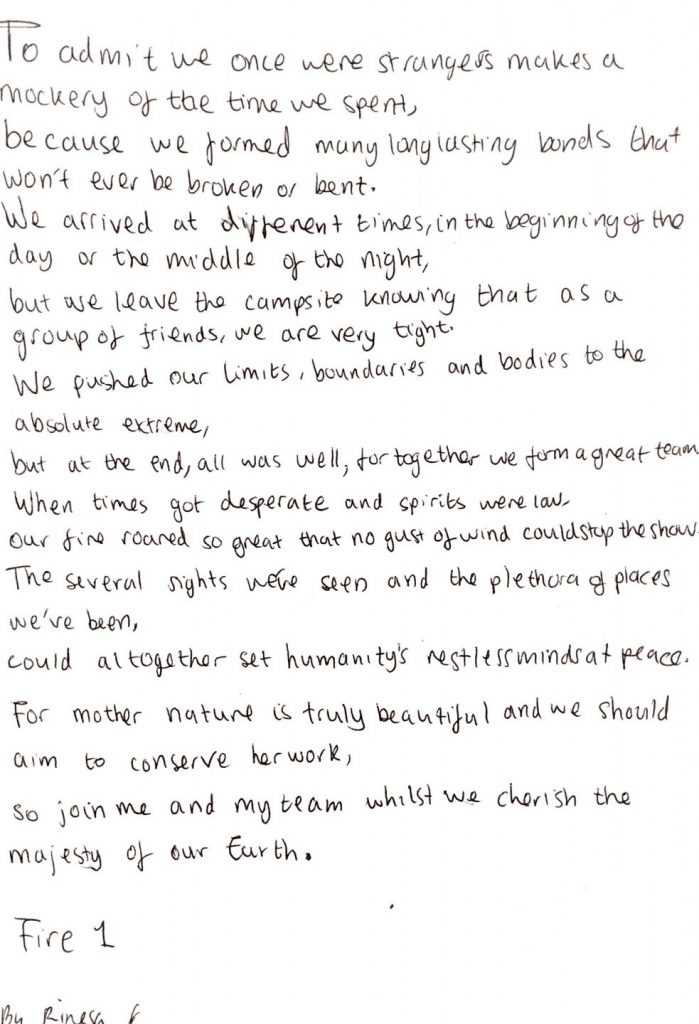 To admit we once were strangers makes a
mockery of the time we spent,
because we formed many long lasting bonds that
won't ever be broken or bent.
We arrived at different times, in the beginning of the
day or the middle of the night,
but we leave the campsite knowing that as a
group of friends, we are very tight.
We pushed our limits, boundaries and bodies to the
absolute extreme,
but at the end, all was well, for together we form a great team.
When times got desperate and spirits were low
our fire roared so great that no gust of wind could stop the show.
The several sights we've seen and the plethora of places
we've been,
could altogether set humanity's restless minds at peace.
For mother nature is truly beautiful and we should
aim to conserve her work,
so join me and my team whilst we cherish the
majesty of our Earth.
Fire 1
By Rinesa